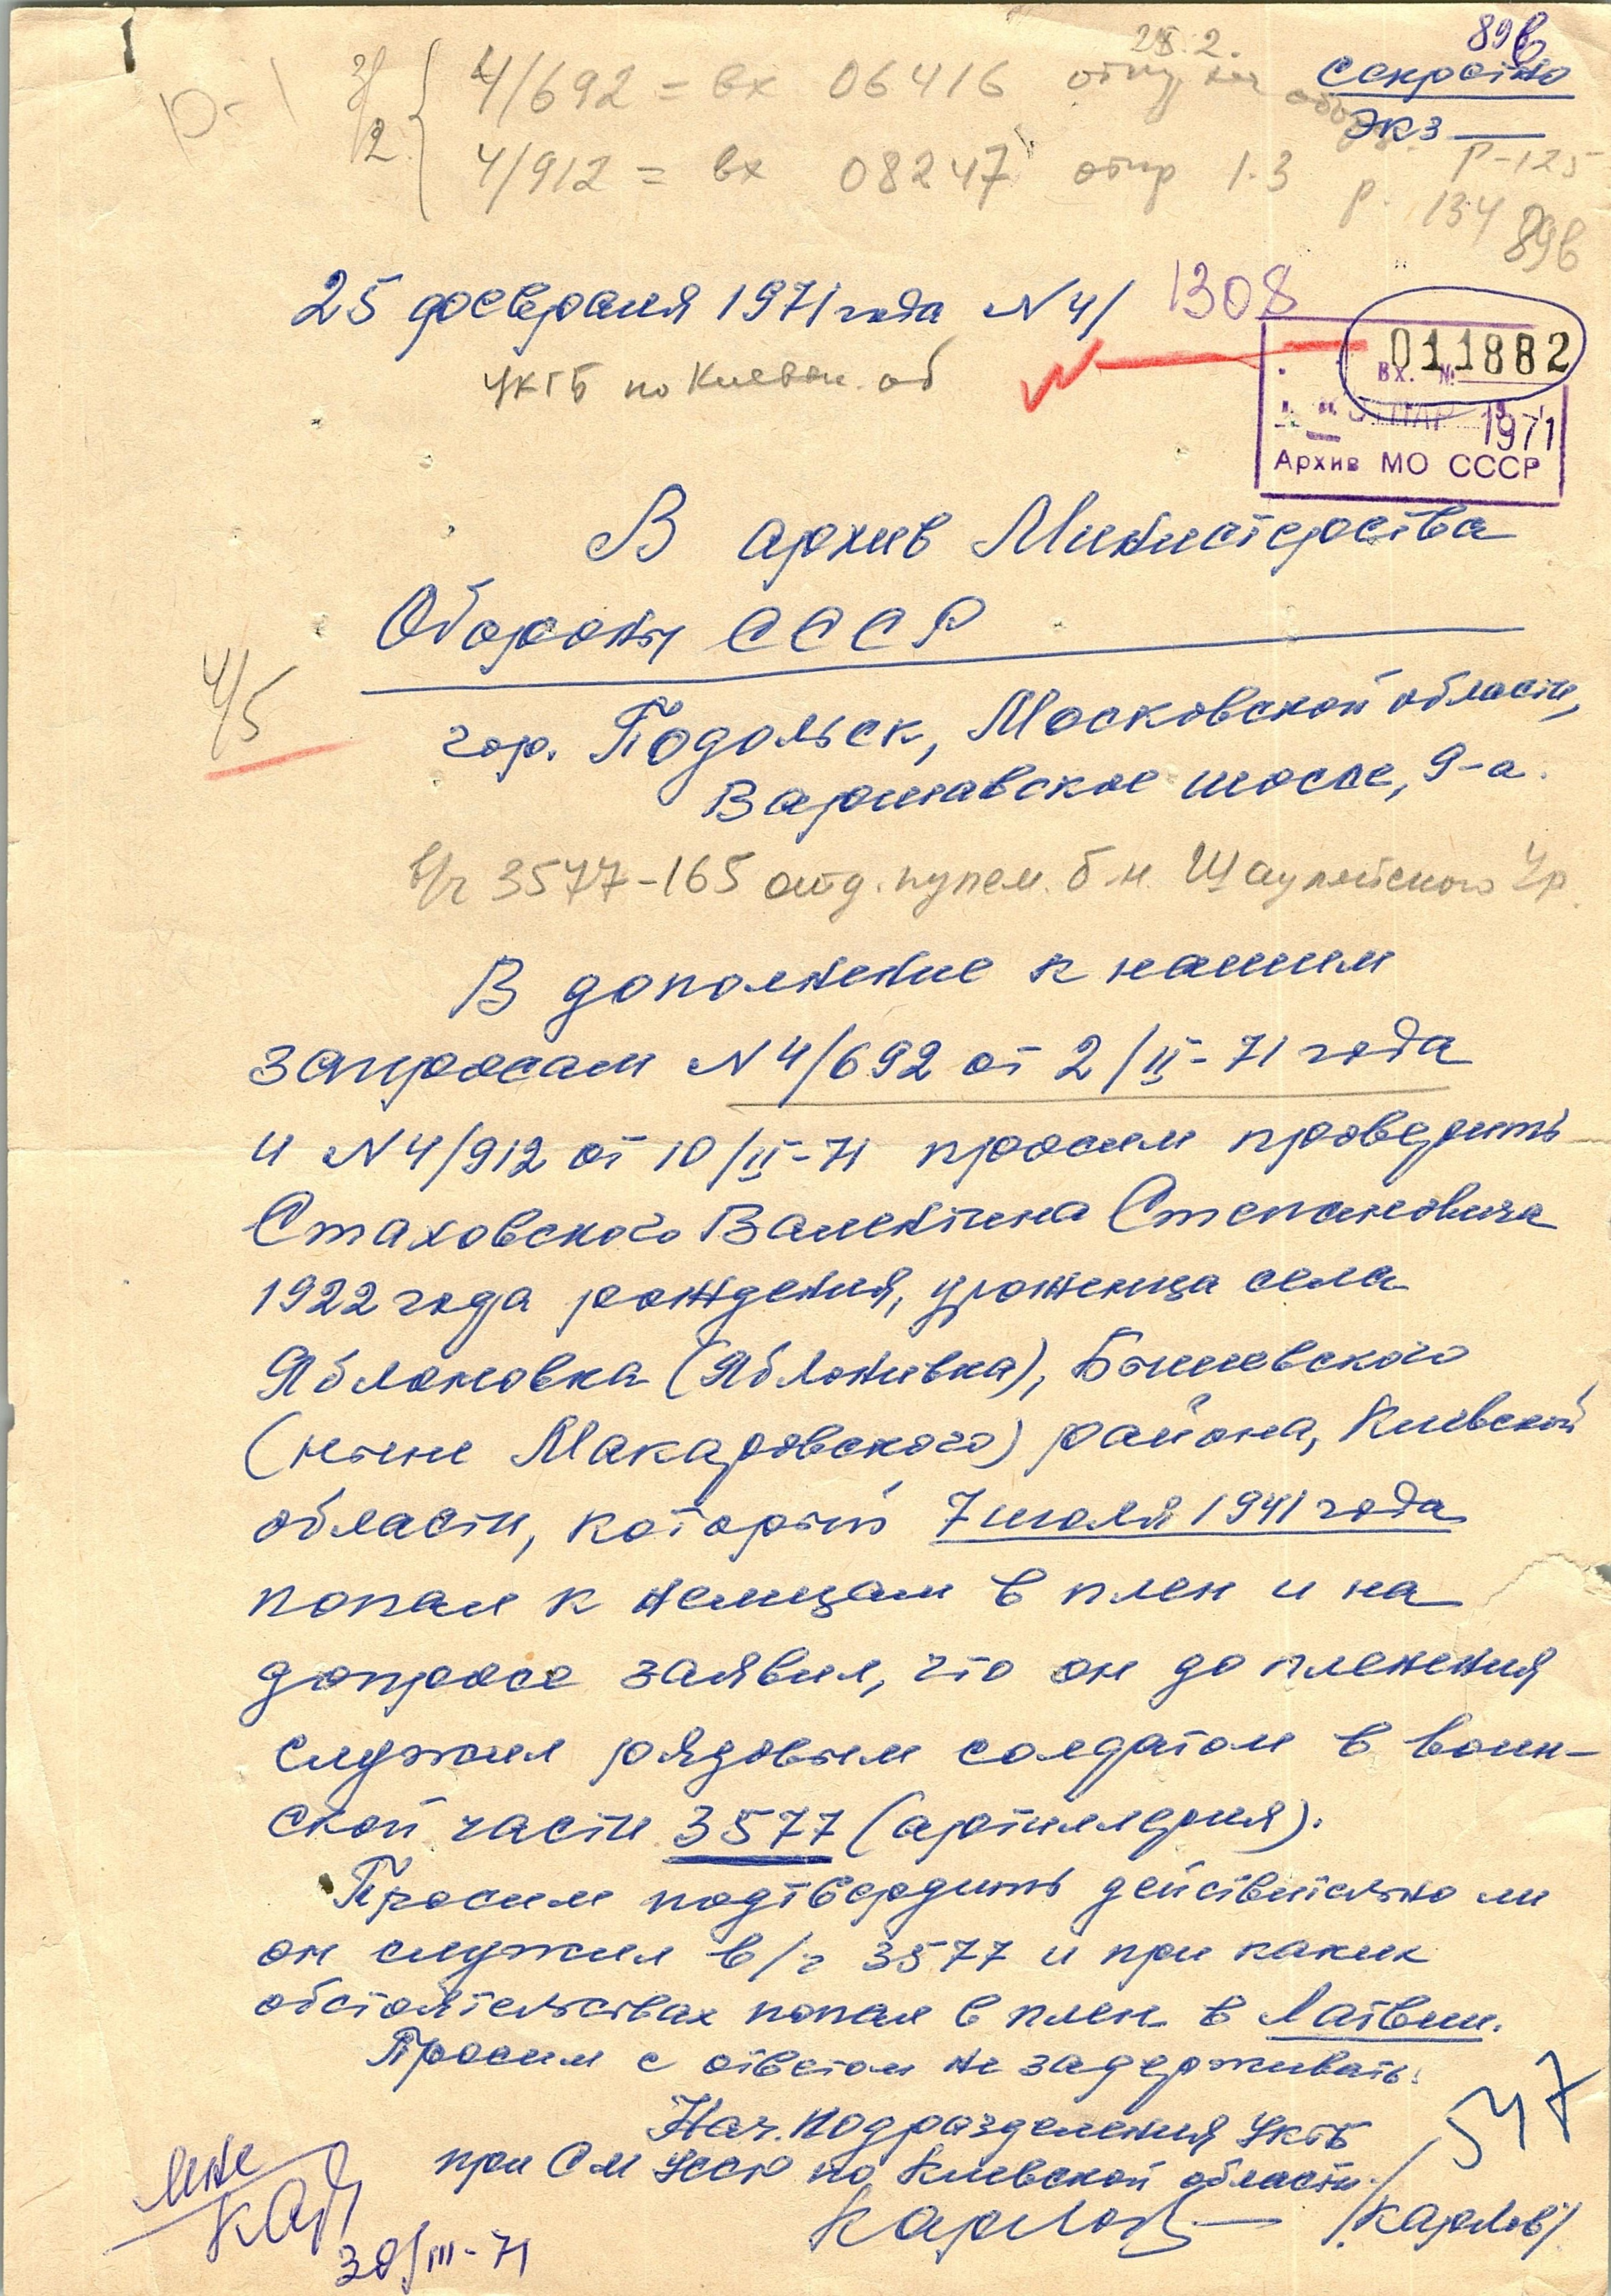 89в
Секретно
Экз
25.2.
4/692 = вх 06416
4/912 = вх 08247 отпр 1.3
р-125
р. 134
89в
25 февраля 1971 года N 4/ 1308
УКГБ по Киевск. об
011882
ВХ. №
МАР 1971
Архив МО СССР
В архив Министерства
Обороны СССР
4/5
гор. Подольск, Московской области,
Варшавское шоссе, 9-а.
в/ч 3577-165 отд. пулем. б-н. Шауляйского Ур.
В дополнение к нашим
запросам N 4/692 от 2/II-71 года
и N 4/912 от 10/II-71 просим проверить
Стаховского Валентина Степановича
1922 года рождения, уроженца села
Яблоновка (Яблонивка), Бышевского
(ныне Макаровского) района, Киевской
области, который 7 июля 1941 года
попал к немцам в плен и на
допросе заявил, что он до пленения
служил рядовым солдатом в воин-
ской части 3577 (артиллерия).
Просим подтвердить действительно ли
он служил в/ч 3577 и при каких
обстоятельствах попал в плен в Латвии.
Просим с ответом не задерживать.
Нач. подразделения УКГБ
при СМ УССР по Киевской области
Карлов /Карлов/
547
30/III-71